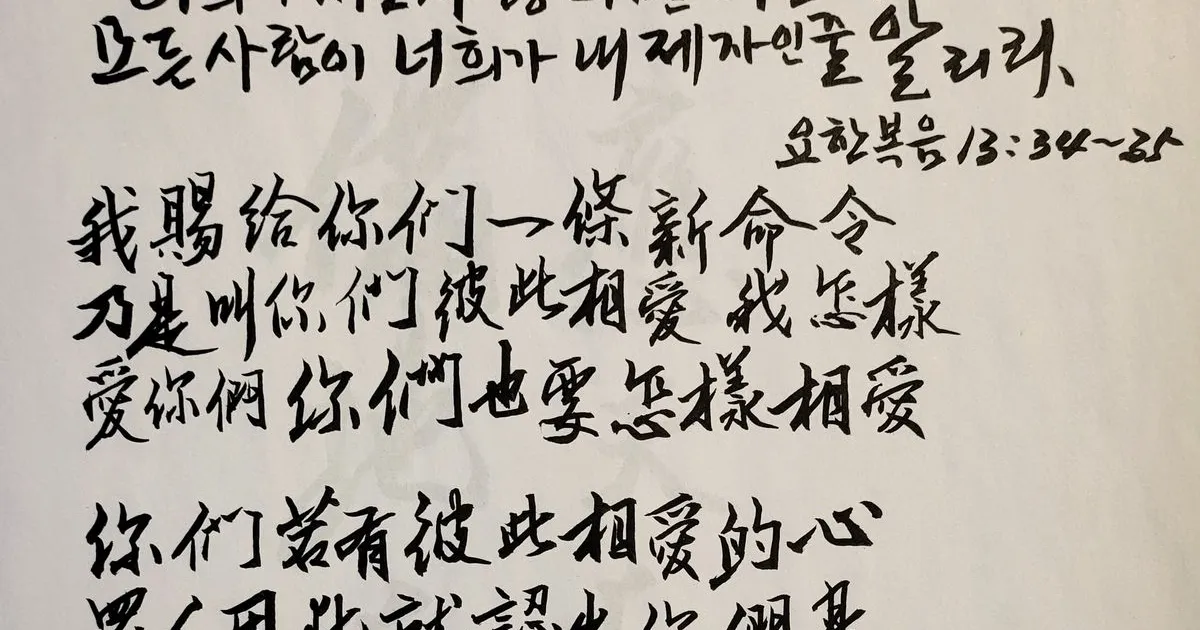 모든 사람이 너희가 내 제자인줄 알리라
요한복음 13:34~35
我賜給你們一條新命令
乃是叫你們彼此相愛 我怎樣
愛你們 你們也要怎樣相愛
你們若有彼此相愛的心